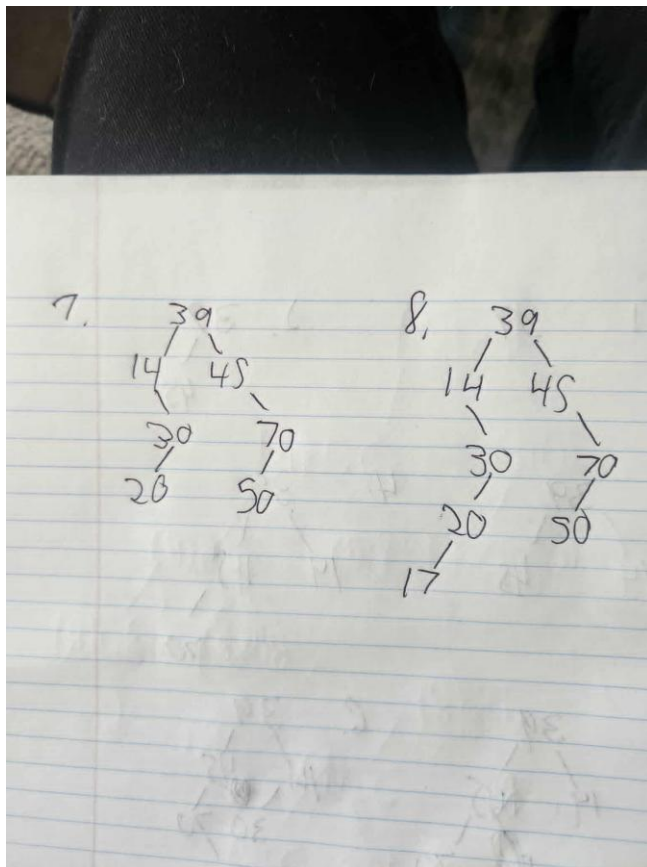 7.
39
14 45
30 70
20 50
8.
39
14 45
30 70
20 50
17